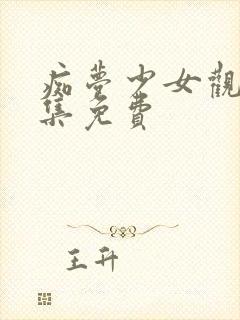 痴夢少女觀
集免費
王升